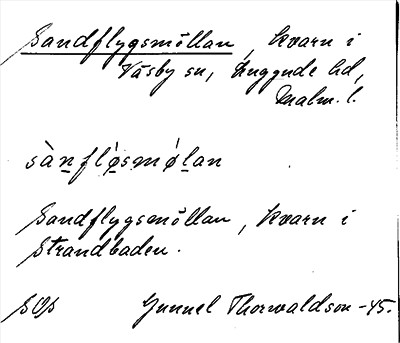 Sandflygsmöllan, kvarn i
Väsby sn, Luggude hd,
Malm. l.
sànfløsmǿlan
Sandflygsmöllan, kvarn i
Strandbaden.
Gunnel Thorwaldson -45.